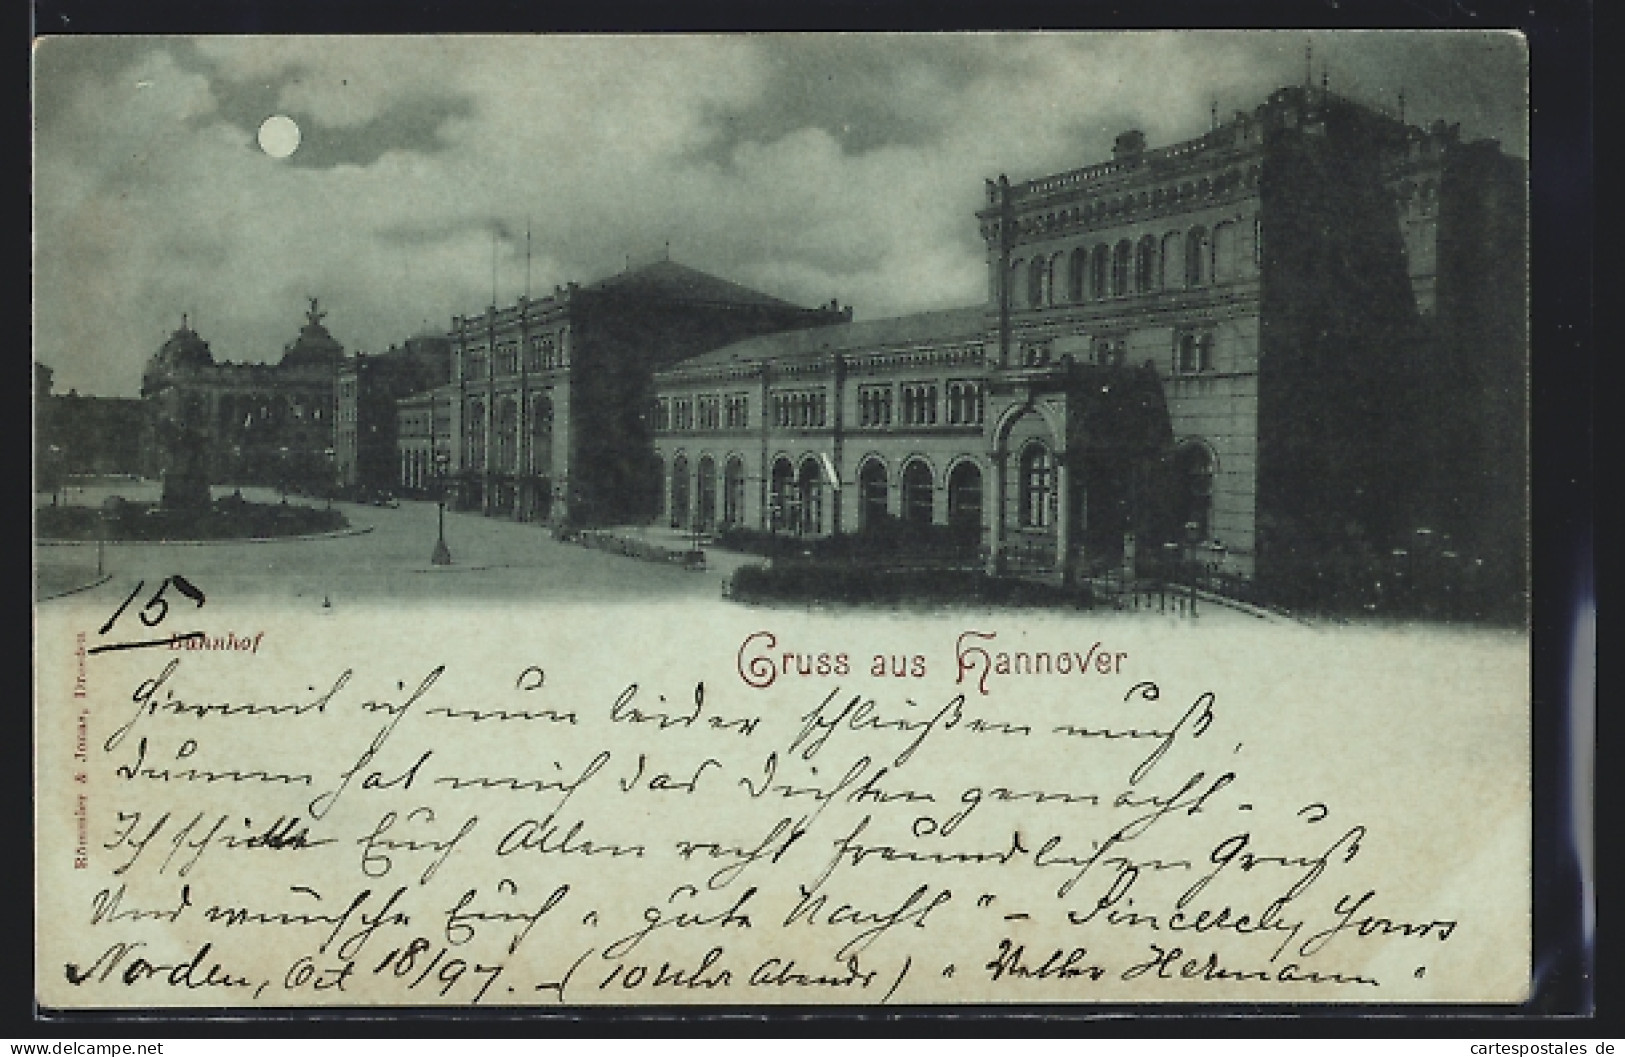 15
Bahnhof
Gruss aus Hannover
Römmler & Jonas, Dresden
Hiermit ich nun leider schließen muß,
dumm hat mich das Dichten gemacht -
Ich schicke Euch Allen recht freundlichen Gruß
Und wünsche Euch „ gute Nacht " - Sincerely Yours
Norden, Oct 18/97. - (10 Uhr Abends) " Hermann "
www.delcampe.net
cartespostales de